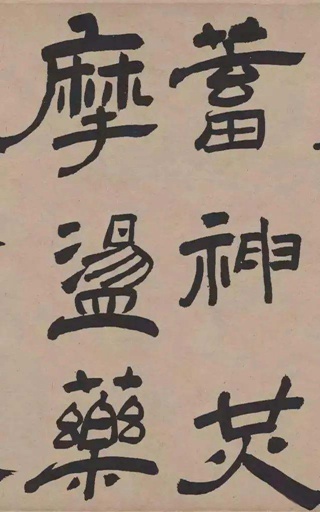 蓄神炗
摩盪藥